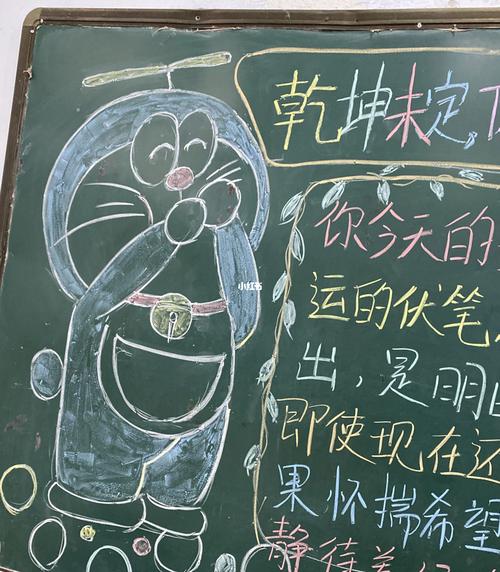 乾坤未定,
你今天的
小红书
运的伏笔,
出,是明
即使现在还
果怀揣希望
静待